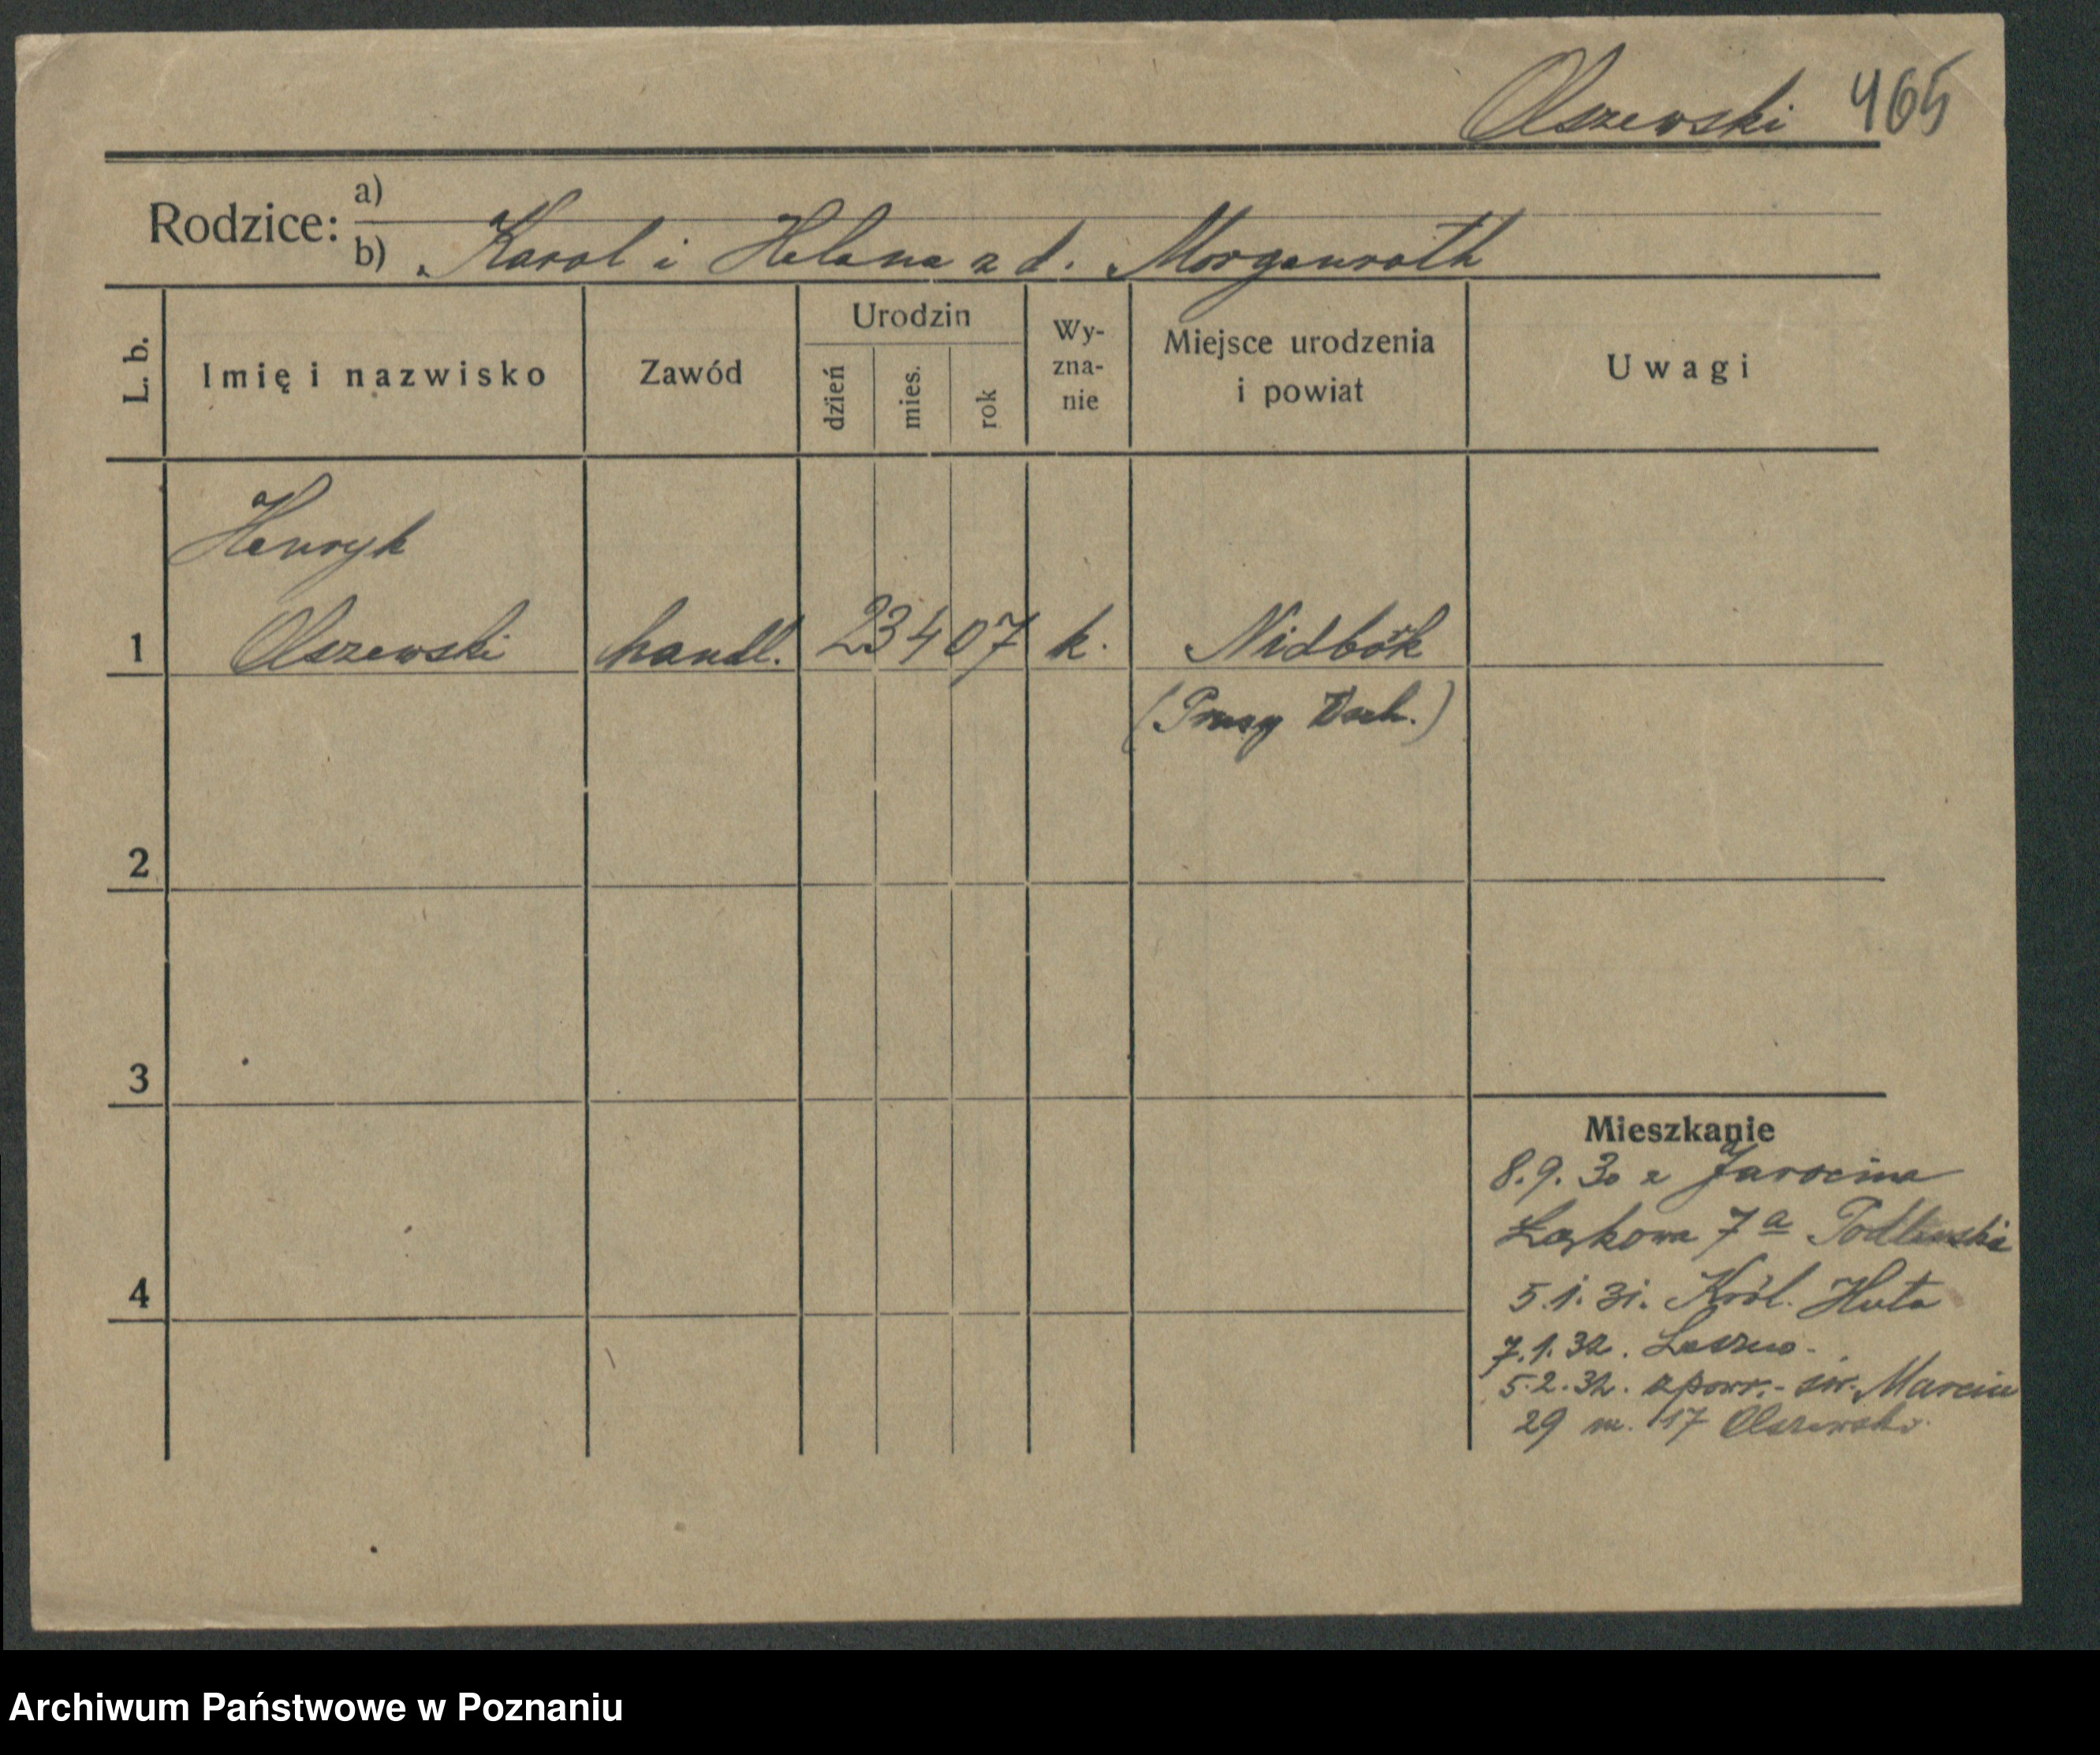 Olszewski 465
Rodzice: a)
b) Karol i Helena z d. Morgenroth
L. b.
Imię i nazwisko
Zawód
Urodzin
dzień
mies.
rok
Wy-
zna-
nie
Miejsce urodzenia
i powiat
Uwagi
Henryk
1 Olszewski handl. 23 4 07 k. Nidbök
(Prusy Wsch.)
2
3
4
Mieszkanie
8.9.30 z Jarocina
Łąkowa 7a
5.1.31. Król. Huta
7.1.32. Leszno.
5.2.32. zpowr. - św. Marcin
29 m. 17 Olszewski
Archiwum Państwowe w Poznaniu